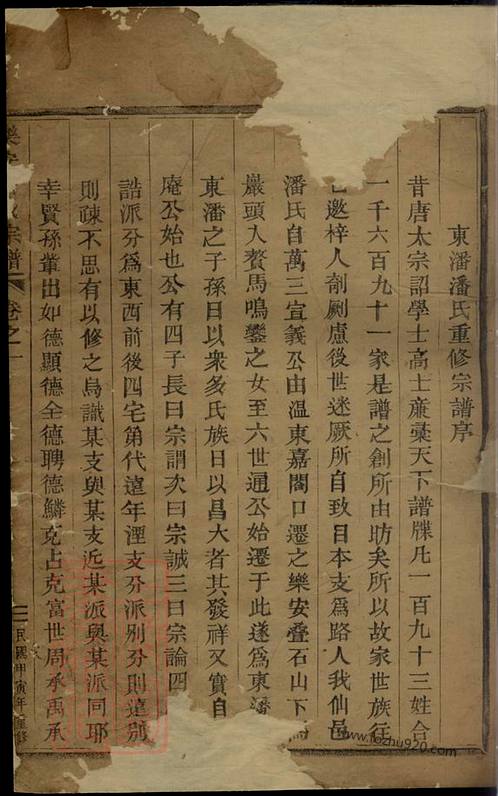 東潘潘氏重修宗譜序
昔唐太宗詔學士高士廉彙天下譜牒凡一百九十三姓合
一千六百九十一家是譜之創所由昉矣所以故家世族往
邀梓人剞劂慮後世迷厥所自致目本支為路人我仙邑
潘氏自萬三宣義公由溫東嘉閣口遷之樂安疊石山下
巖頭人贅馬鳴鑾之女至六世通公始遷于此遂為東潘
東潘之子孫日以衆多氏族日以昌大者其發祥又實自
庵公始也公有四子長曰宗謂次曰宗誠三曰宗論四
誥派分為東西前後四宅第代遠年湮支分派別分則遠別
則疎不思有以修之烏識某支與某支近某派與某派同耶
幸賢孫輩出如德顯德全德聘德鱗克占克富世周承禹承
宗譜
卷之一
民國甲寅年重修
www.fozhu920.com